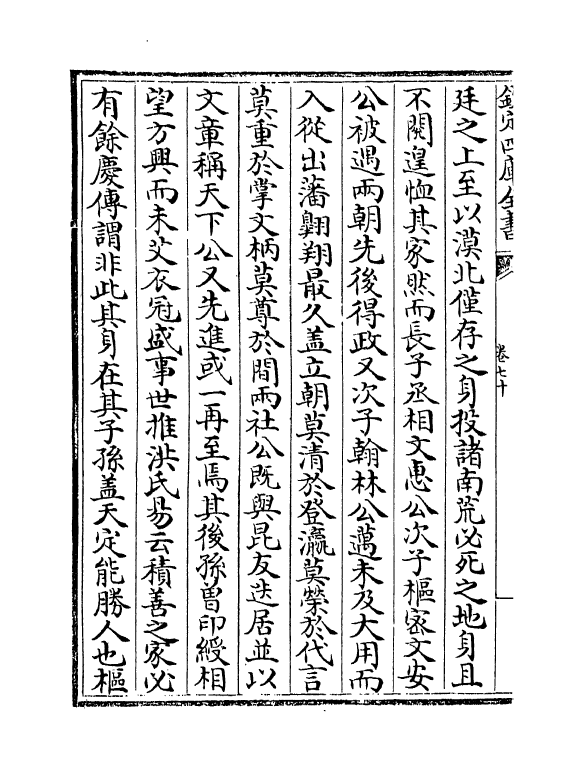 欽定四庫全書
卷七十
廷之上至以漠北僅存之身投諸南荒必死之地身且
不閱遑恤其家然而長子丞相文惠公次子樞密文安
公被遇兩朝先後得政又次子翰林公邁未及大用而
入從出藩翺翔最久盖立朝莫清於登瀛莫榮於代言
莫重於掌文柄莫尊於開兩社公既與昆友迭居並以
文章稱天下公又先進或一再至焉其後孫曽印綬相
望方興而未艾衣冠盛事世推洪氏易云積善之家必
有餘慶傳謂非此其身在其子孫盖天定能勝人也樞